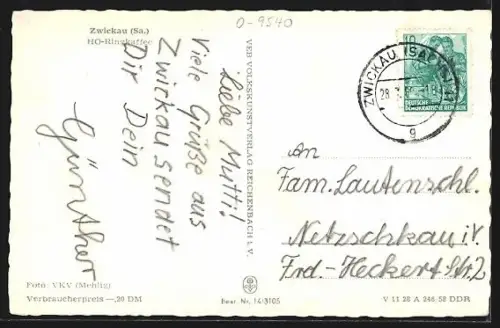 Zwickau (Sa.)
HO-Ringkaffee
0-9540
Liebe Mutti!
Viele Grüße aus
Zwickau sendet
Dir Dein
Günther
VEB VOLKSKUNSTVERLAG REICHENBACH I. V.
10
DEUTSCHE
DEMOKRATISCHE REPUBLIK
ZWICKAU (SACHS)
28.
g
An
Fam. Lautenschl.
Netzschkau i/V.
Frd-Heckert Str. 2
Foto: VKV (Mehlig)
Verbraucherpreis —,20 DM
Best. Nr. 14/3105
V 11 28 A 246 58 DDR